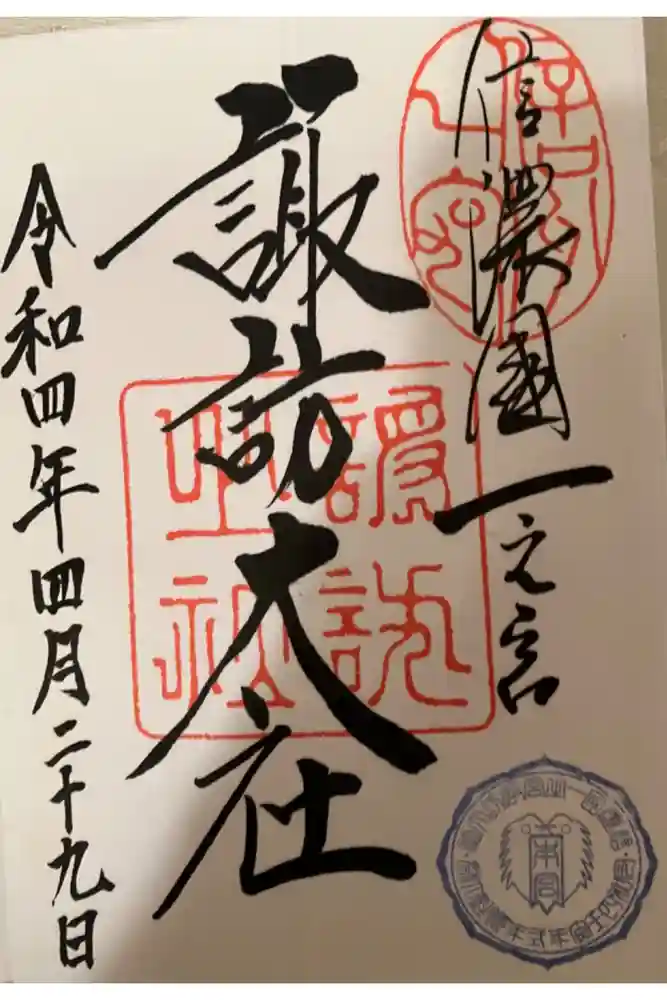 信濃國一之宮
諏訪大社
令和四年四月二十九日
諏訪大社
本宮